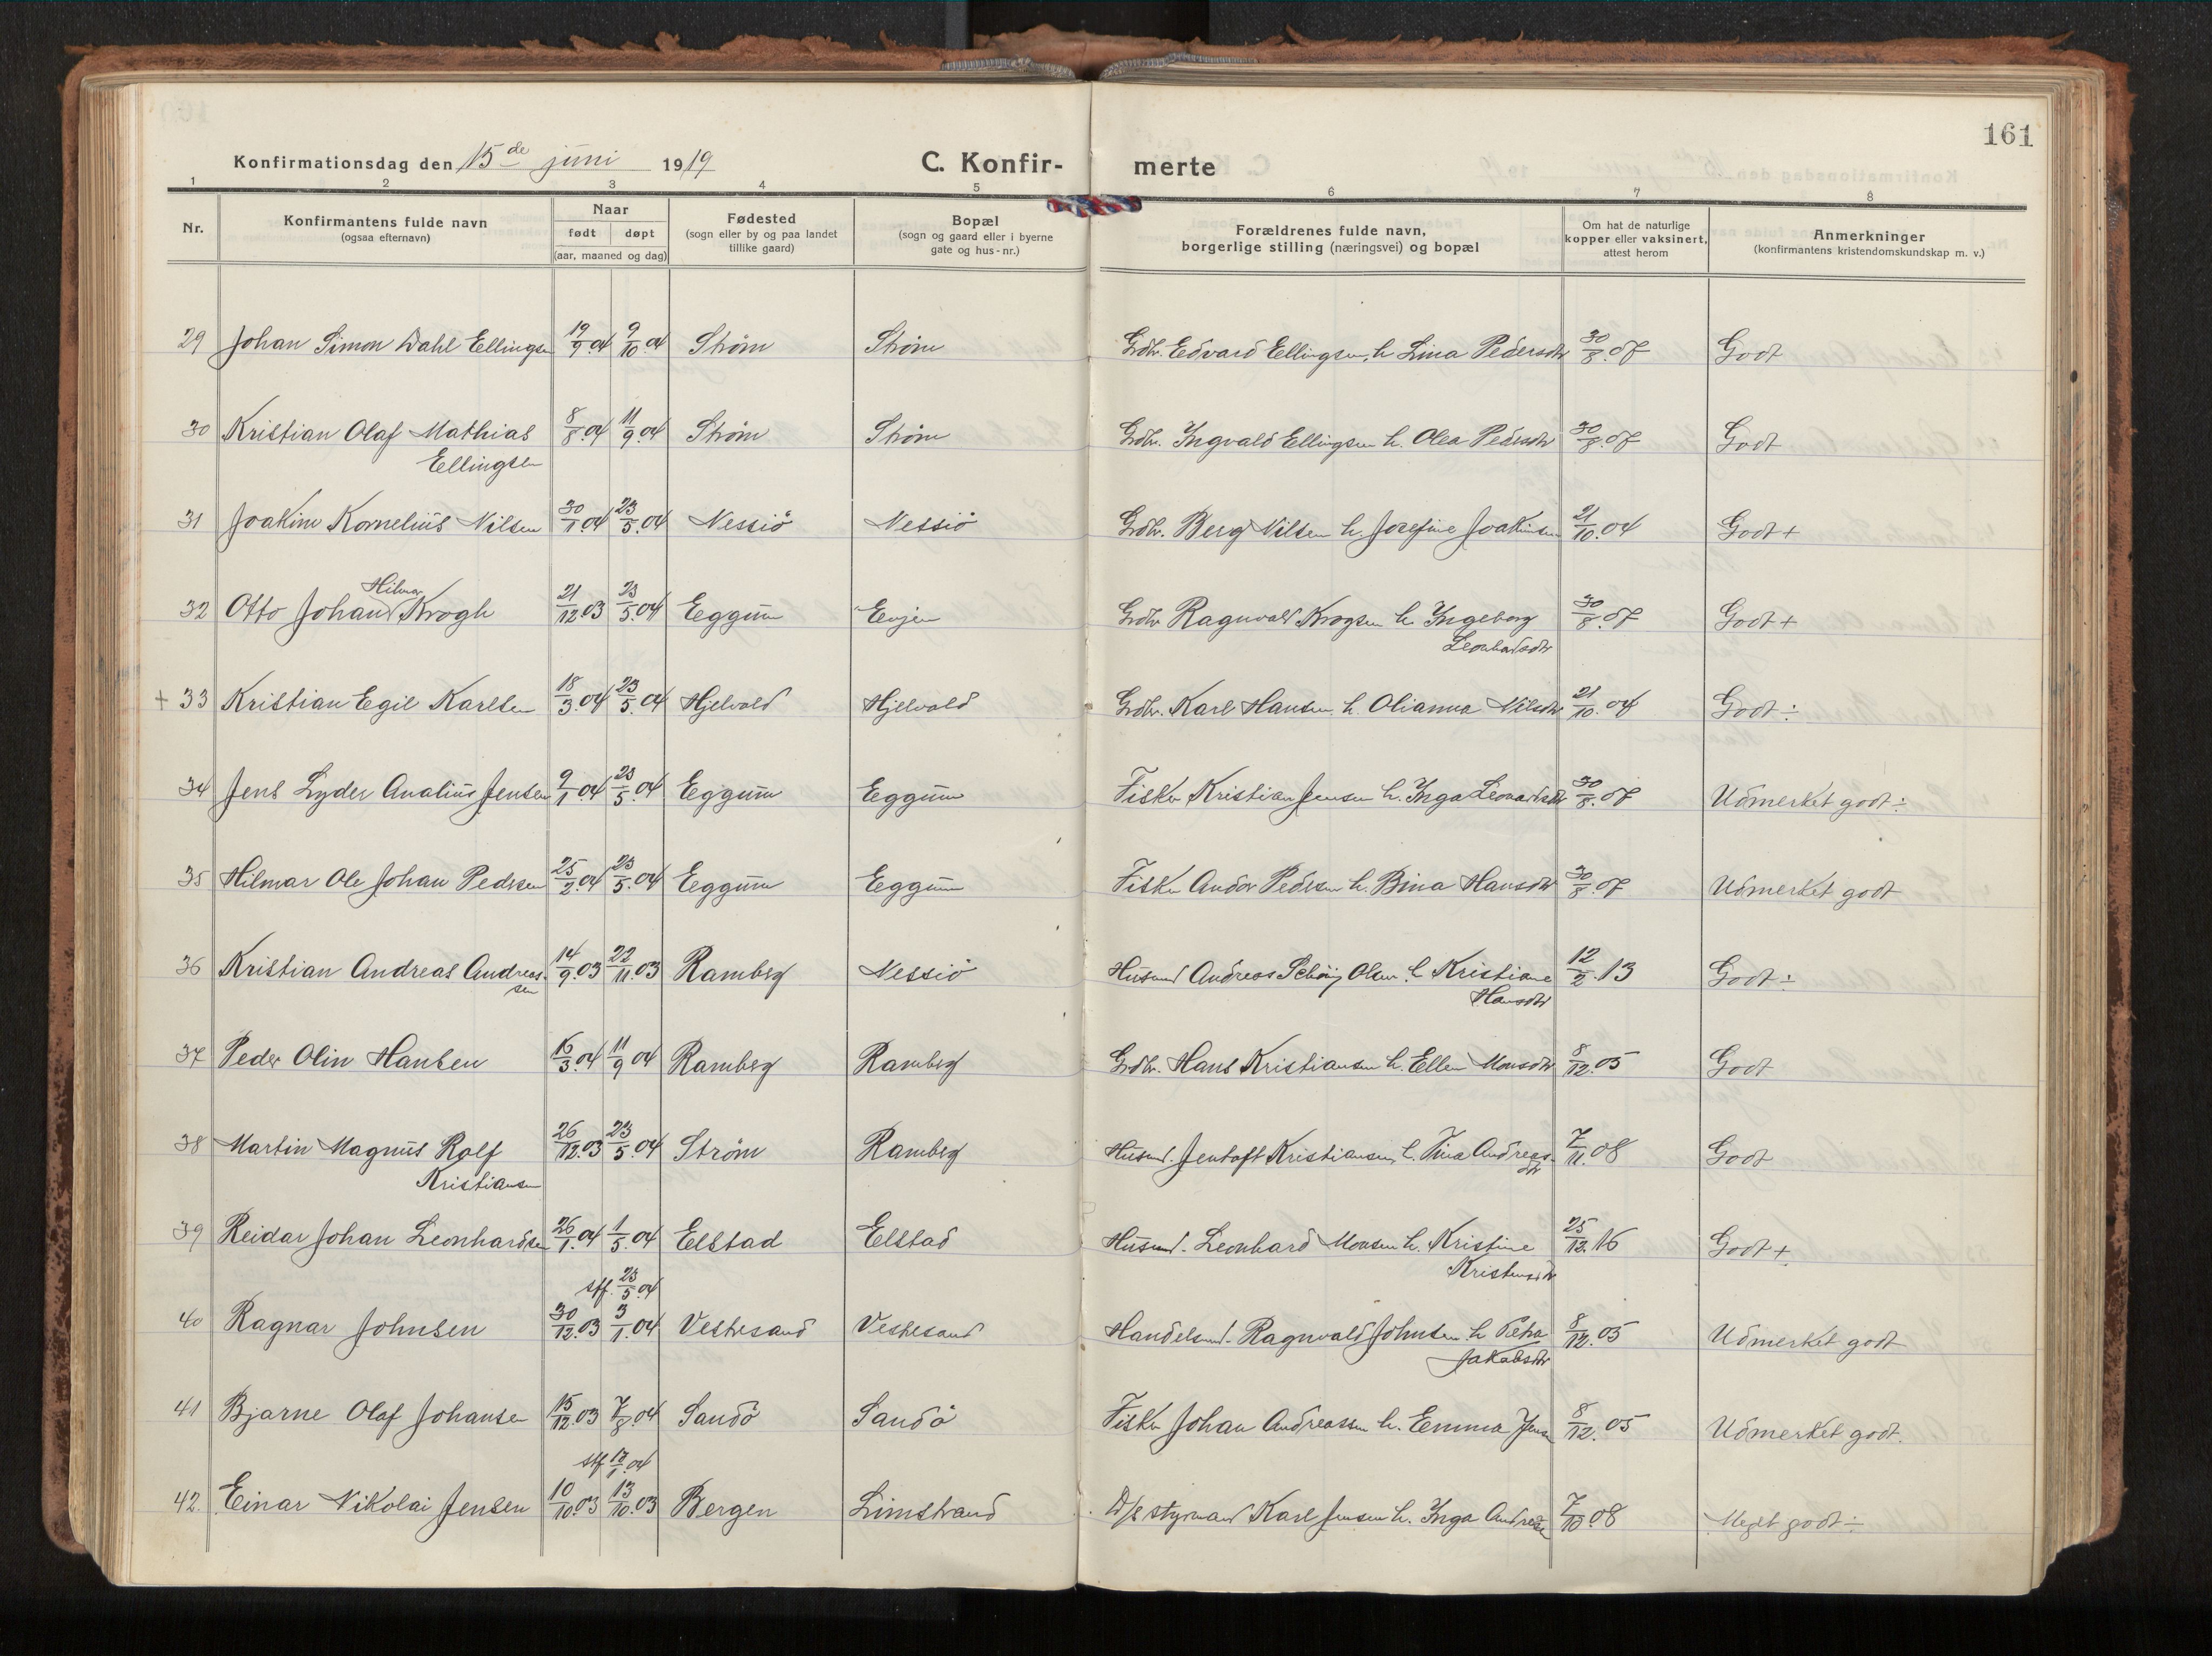 161
Konfirmationsdag den 15de juni 1919 C. Konfir- merte
1 2 3 4 5 6 7 8
Nr. Konfirmantens fulde navn (ogsaa efternavn) Naar født døpt (aar, maaned og dag) Fødested (sogn eller by og paa landet tillike gaard) Bopæl (sogn og gaard eller i byerne gate og hus-nr.) Forældrenes fulde navn, borgerlige stilling (næringsvei) og bopæl Om hat de naturlige kopper eller vaksinert, attest herom Anmerkninger (konfirmantens kristendomskundskap m. v.)
29 Johan Simon Dahl Ellingsen 19/9.04 9/10.04 Strøm Strøm Grdbr. Edvard Ellingsen, h. Lina Pedersdtr 30/8.07 Godt
30 Kristian Olaf Mathias 8/8.04 11/9.04 Strøm Strøm Grdbr. Ingvald Ellingsen h. Olea Pedersdtr 30/8.07 Godt
Ellingsen
31 Joakim Kornelius Nilsen 30/1.04 23/5.04 Nessiö Nessiö Grdbr. Berg Nilsen h. Josefine Joakimsen 21/10.04 Godt +
Hilmar
32 Otto Johan Krogh 21/12.03 23/5.04 Eggum Evjen Grdbr Ragnvald Krogsen h. Ingeborg 30/8.07 Godt +
Leonhardsdtr
+ 33 Kristian Egil Karlsen 18/3.04 23/5.04 Hjelvold Hjelvold Grdbr. Karl Hansen h. Olianna Nilsdtr 21/10.04 Godt ÷
34 Jens Lyder Analius Jensen 9/1.04 23/5.04 Eggum Eggum Fisker Kristian Jensen h. Inga Leonardsdtr 30/8.07 Udmerket godt ÷
35 Hilmar Ole Johan Pedersen 25/2.04 23/5.04 Eggum Eggum Fisker Andor Pedersen h. Bina Hansdtr 30/8.07 Udmerket godt
36 Kristian Andreas Andreas- 14/9.03 22/11.03 Ramberg Nessiö Husmd Andreas Schöning Olsen h. Kristiane 12/2.13 Godt ÷
sen Hansdtr
37 Peder Olin Hansen 16/3.04 11/9 04 Ramberg Ramberg Grdbr. Hans Kristiansen h. Ellen Monsdtr 8/12.05 Godt
38 Martin Magnus Rolf 26/12.03 23/5.04 Strøm Ramberg Husmd. Jentoft Kristiansen, h. Tina Andreas- 7/11.08 Godt
Kristiansen dtr
39 Reidar Johan Leonhardsen 26/1.04 1/5.04 Elstad Elstad Husmd. Leonhard Monsen h. Kristine 25/12.16 Godt +
Kristensdtr
stf. 23/5.04
40 Ragnar Johnsen 30/12.03 3/1.04 Vestresand Vestresand Handelsmd. Ragnvald Johnsen h. Petra 8/12.05 Udmerket godt
Jakobsdtr
41 Bjarne Olaf Johansen 15/12.03 7/8.04 Sandö Sandö Fisker Johan Andreassen h. Emma Jensen 8/12.05 Udmerket godt.
stf 17/1.04
42. Einar Nikolai Jensen 10/10.03 13/10.03 Bergen Limstrand D/s styrmand Karl Jensen h. Inga Andreasen 7/10.08 Meget godt ÷